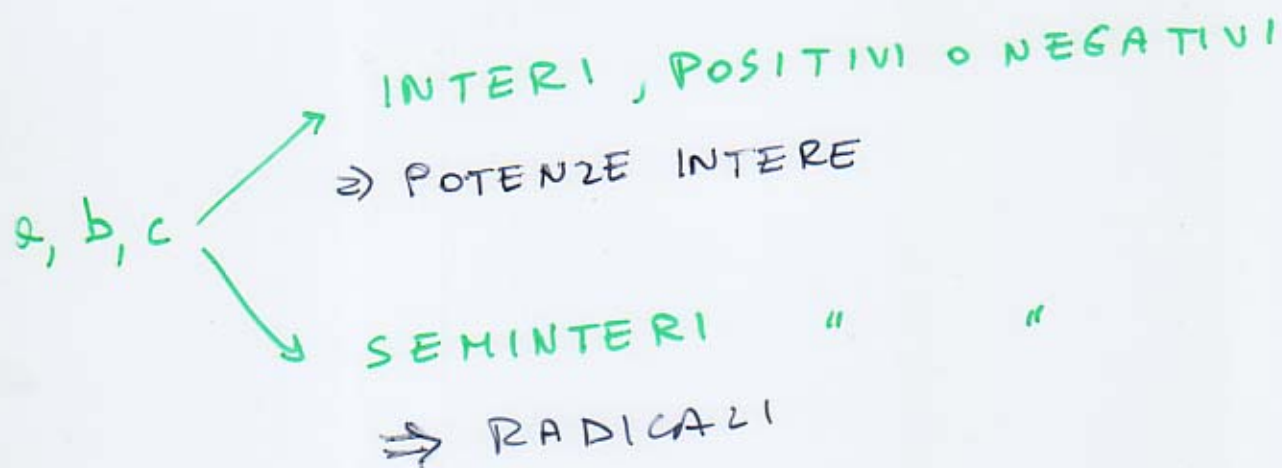 INTERI, POSITIVI O NEGATIVI
⇒ POTENZE INTERE
a, b, c
SEMINTERI " "
⇒ RADICALI